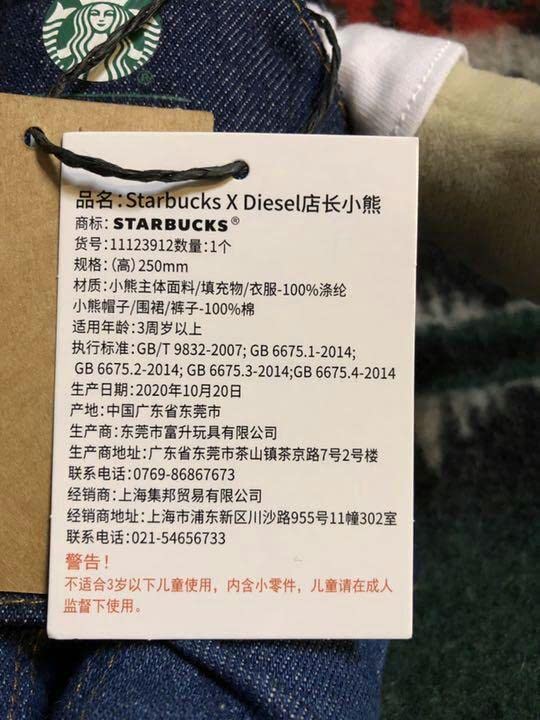 品名:Starbucks X Diesel店长小熊
商标:STARBUCKS®
货号:11123912数量:1个
规格:(高)250mm
材质:小熊主体面料/填充物/衣服-100%涤纶
小熊帽子/围裙/裤子-100%棉
适用年龄:3周岁以上
执行标准:GB/T 9832-2007; GB 6675.1-2014;
GB 6675.2-2014; GB 6675.3-2014;GB 6675.4-2014
生产日期:2020年10月20日
产地:中国广东省东莞市
生产商:东莞市富升玩具有限公司
生产商地址:广东省东莞市茶山镇茶京路7号2号楼
联系电话:0769-86867673
经销商:上海集邦贸易有限公司
经销商地址:上海市浦东新区川沙路955号11幢302室
联系电话:021-54656733
警告!
不适合3岁以下儿童使用，内含小零件，儿童请在成人
监督下使用。